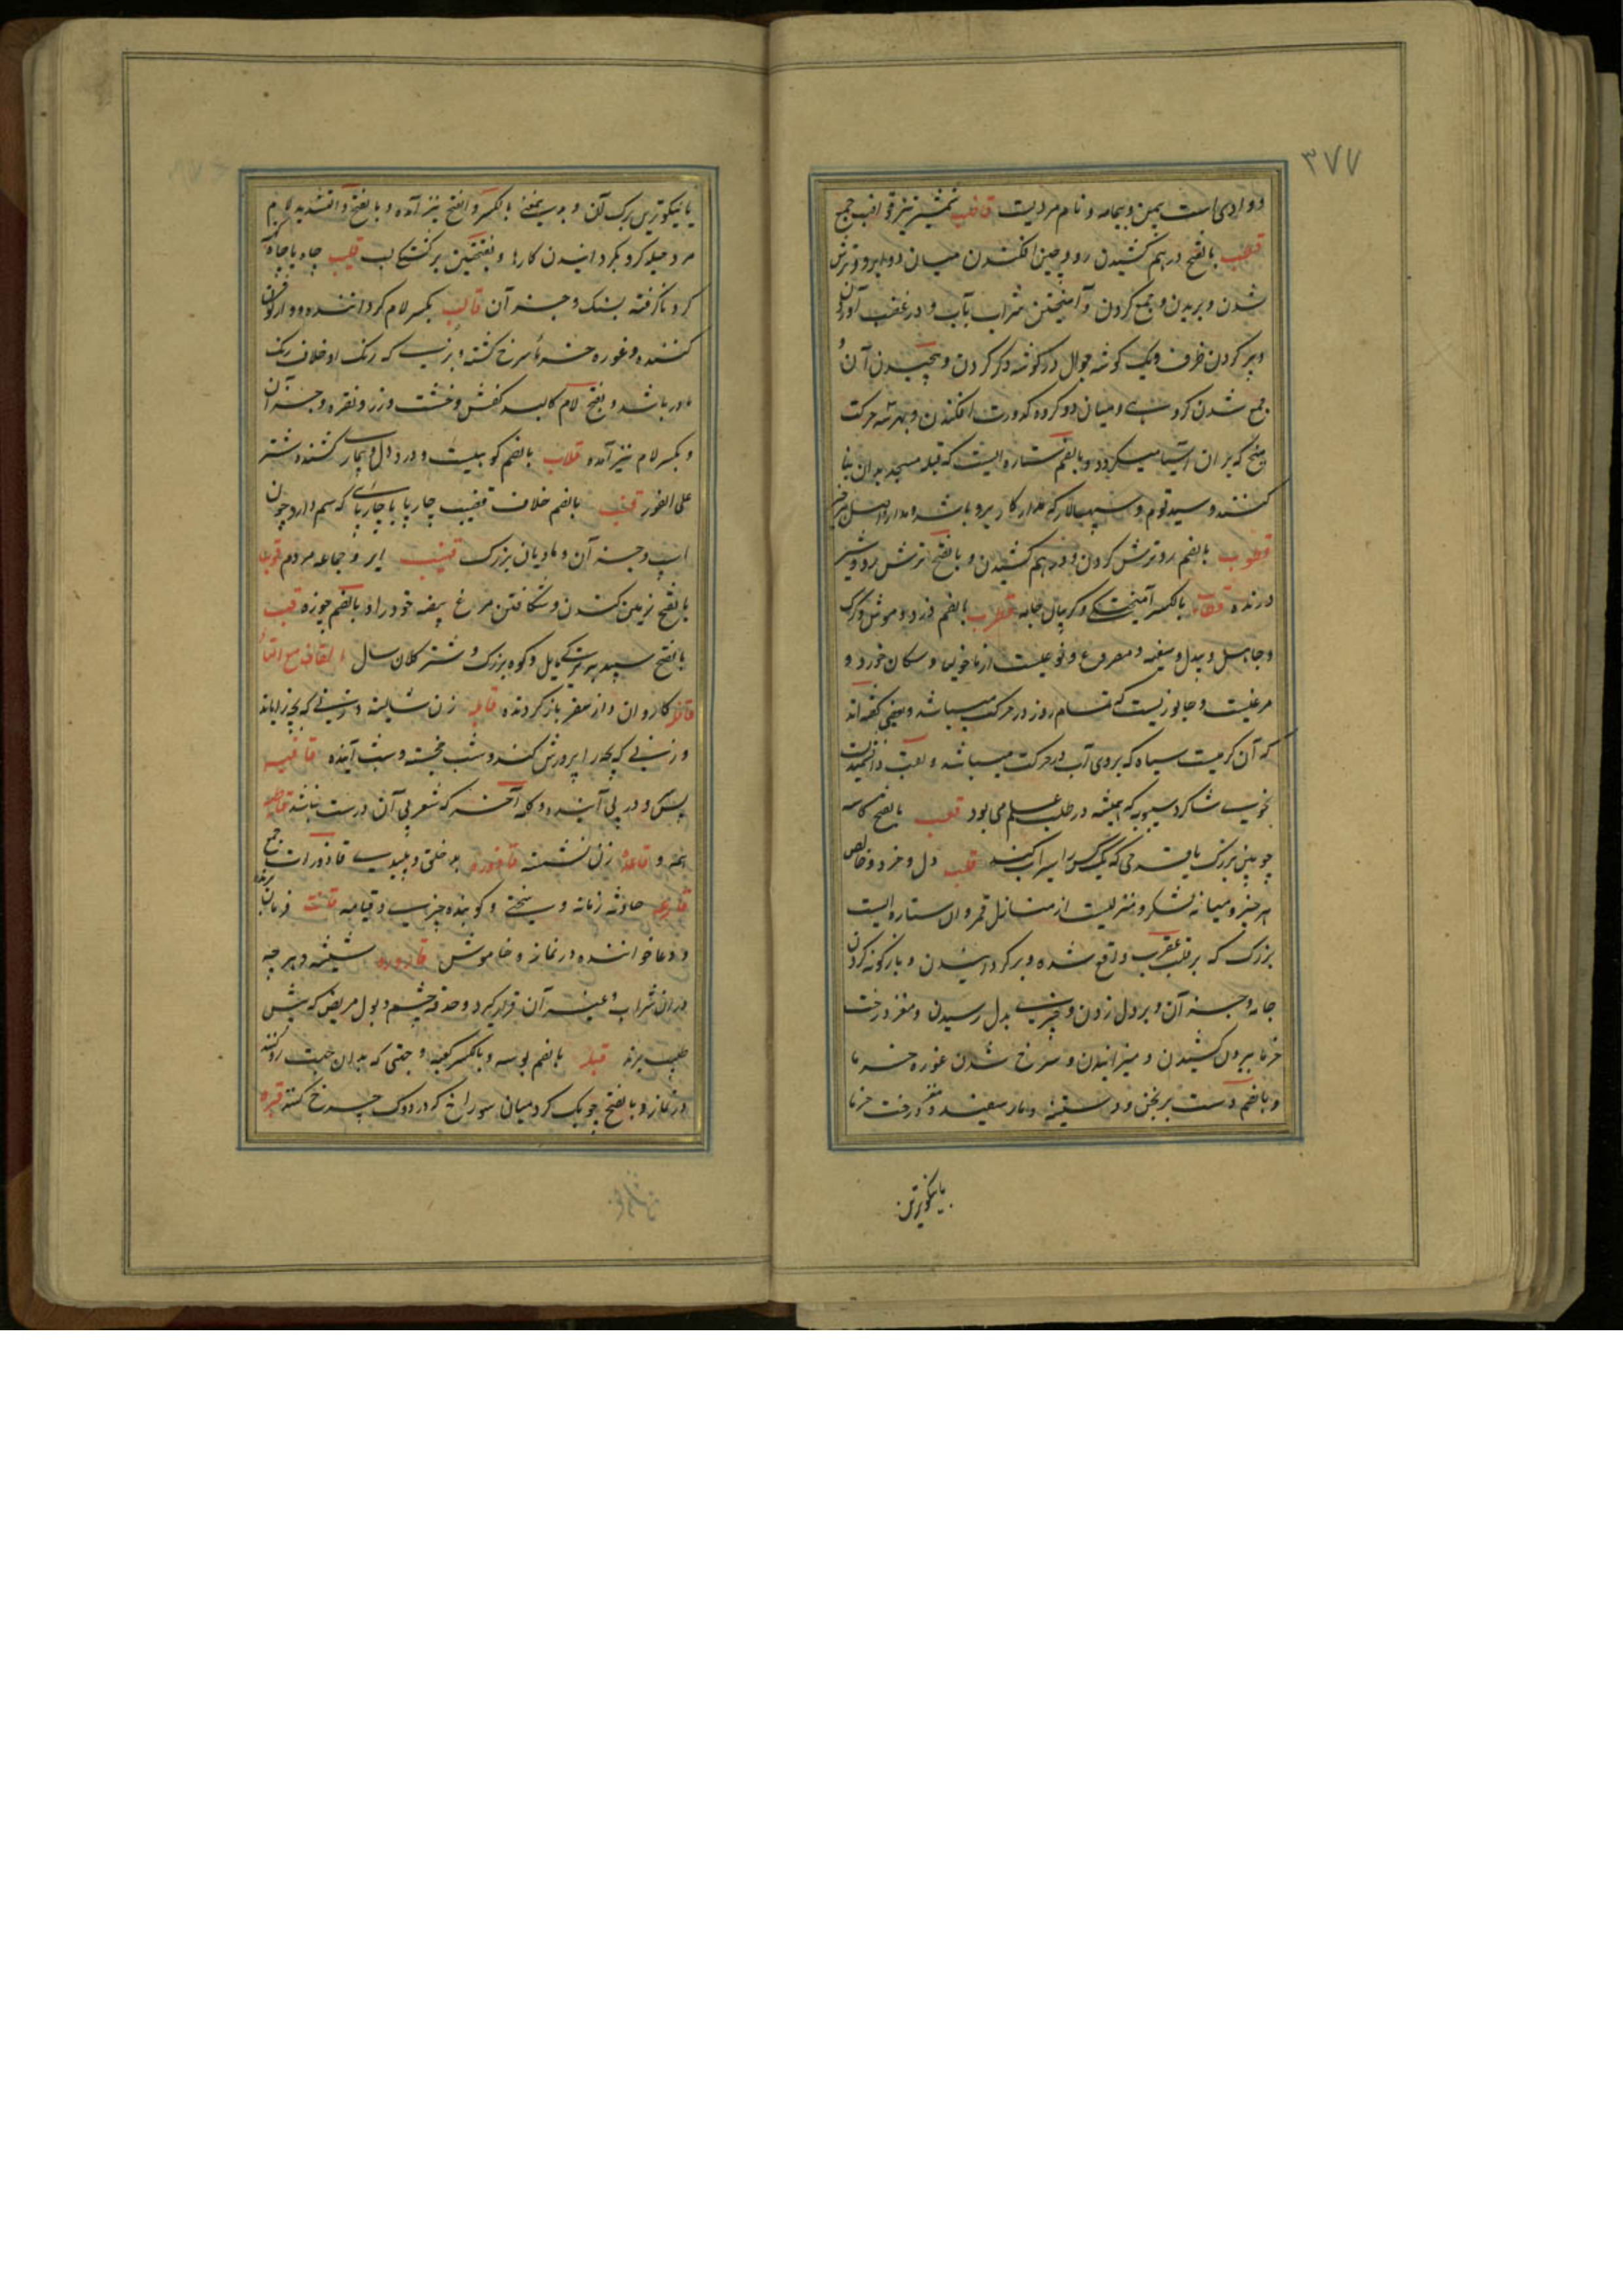 ۳۷۷
و وادی است بیمن و بیمامه و نام مردیست قاضب شمشیر تیز قواضب جمع
قطب بالفتح درهم کشیدن رو و چین افکندن میان دو ابرو و ترش
شدن و بریدن و جمع کردن و آمیختن شراب بآب و در غضب آوردن
و پر کردن ظرف و یک گوشه جوال در گوشه دگر کردن و پیچیدن آن و
جمع شدن گروهی و میان دو گروه کدورت افکندن و بهر سه حرکت
میخ که بران آسیا میگردد و بالضم ستاره ایست که قبله مسجد بدان بنا
کنند و سید قوم و سپهسالار که مدار کار برو باشد و مدار و اصل هر چیز
قطوب بالضم رو ترش کردن و درهم کشیدن و بالفتح ترش رو و شیر
درنده قطاب بالکسر آمیختگی و گریبان جامه قطرب بالضم دزد و موش و گرگ
و جاهل و بددل و سفیه و مصروع و نوعیست از ماخولیا و سگان خورد و
مرغیست و جانوریست که تمام روز در حرکت میباشد و بعضی گفته اند
که آن کرمیست سیاه که بروی آب در حرکت میباشد و لقب دانشمندیست
نحوی شاگرد سیبویه که همیشه در طلب علم می بود قعب بالفتح کاسه
چوبین بزرگ یا قدحی که یک کس را سیراب کند قلب دل و خرد و خالص
هر چیز و میانه لشکر و منزلیست از منازل قمر و آن ستاره ایست
بزرگ که بر قلب عقرب واقع شده و برگردانیدن و باژگونه کردن
جامه و جز آن و بر دل زدن و چیزی بدل رسیدن و مغز درخت
خرما بیرون کشیدن و میرانیدن و سرخ شدن غوره خرما
و بالضم دست برنجن و دستینه و مار سفید و مغز درخت خرما
یا نیکوترین
یا نیکوترین برگ آن و بدین معنی بالکسر و الفتح نیز آمده و بالفتح و التشدید لام
مرد حیله گر و بگردانیدن کارها و بفتحین برگشتگی لب قلیب چاه یا چاه کهنه
گرد ناگرفته بسنگ و جز آن قالب بکسر لام گرداننده و واژگون
کننده و غوره خرمای سرخ گشته و بزی که رنگ او خلاف رنگ
مادر باشد و بفتح لام کالبد کفش و خشت و زر و نقره و جز آن
و بکسر لام نیز آمده قلاب بالضم کوهیست و درد دل و بیماری کشنده شتر
علی الفور قنب بالضم غلاف قضیب چارپا یا چارپای که سم دارد چون
اسپ و جز آن و بادبان بزرگ قنیب ابر و جماعه مردم قوب
بالفتح زمین کندن و شکافتن مرغ بیضه خود را و بالضم چوزه قهب
بالفتح سپید بتیرگی مایل و کوه بزرگ و شتر کلان سال القاف مع التاء
قافله کاروان و از سفر باز گردنده قابله زن شایسته و زنی که بچه زایاند
و زنی که بچه را پرورش کند و شب خجسته و شب آینده قافیه
پس گردن و در پی آینده و کلمه آخر که شعر بی آن درست نباشد قاطبه
همه و قاعده زن نشسته قاذوره بد خلق و پلیدی قاذورات جمع
قارعه حادثه زمانه و سختی و کوبنده چیزی و قیامه قانت فرمان برنده
و دعا خواننده در نماز و خاموش قاروره شیشه و هر چه
در ان شراب و غیر آن قرار گیرد و حدقه چشم و بول مریض که پیش
طبیب برند قبله بالضم بوسه و بالکسر کعبه و جهتی که بدان جهت رو کنند
در نماز و بالفتح چوبک گرد میان سوراخ که در دوک چرخ کنند قتره